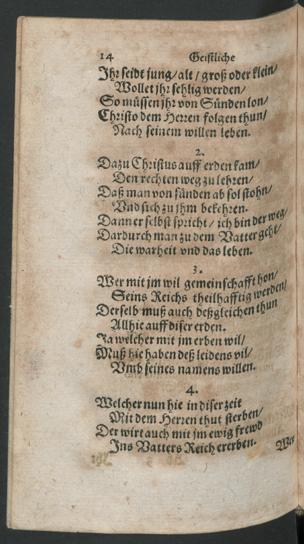 14 Geistliche
Jhr seidt jung/ alt/ groß oder klein/
Wollet jhr sehlig werden/
So müssen jhr von Sünden lon/
Christo dem Herren folgen thun/
Nach seinem willen leben.
2.
Dazu Christus auff erden kam/
Den rechten weg zu lehren/
Daß man von sünden ab sol stohn/
Vnd sich zu jhm bekehren.
Dann er selbst spricht/ ich bin der weg/
Dardurch man zu dem Vatter geht/
Die warheit vnd das leben.
3.
Wer mit jm wil gemeinschafft hon/
Seins Reichs theilhafftig werden/
Derselb muß auch deßgleichen thun
Allhie auff diser erden.
Ja welcher mit jm erben wil/
Muß hie haben deß leidens vil/
Vmb seines namens willen.
4.
Welcher nun hie in diser zeit
Mit dem Herren thut sterben/
Der wirt auch mit jm ewig frewd
Ins Vatters Reich ererben.